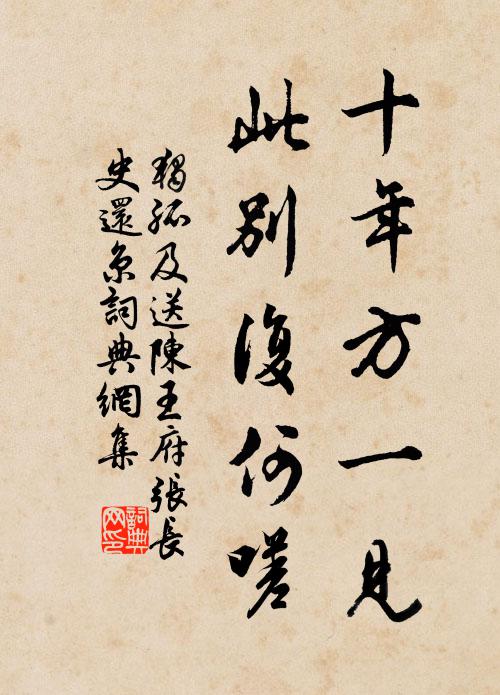 十年方一見
此別復何嗟
獨孤及送陳王府張長
史還京詞典網集
詞典
網印